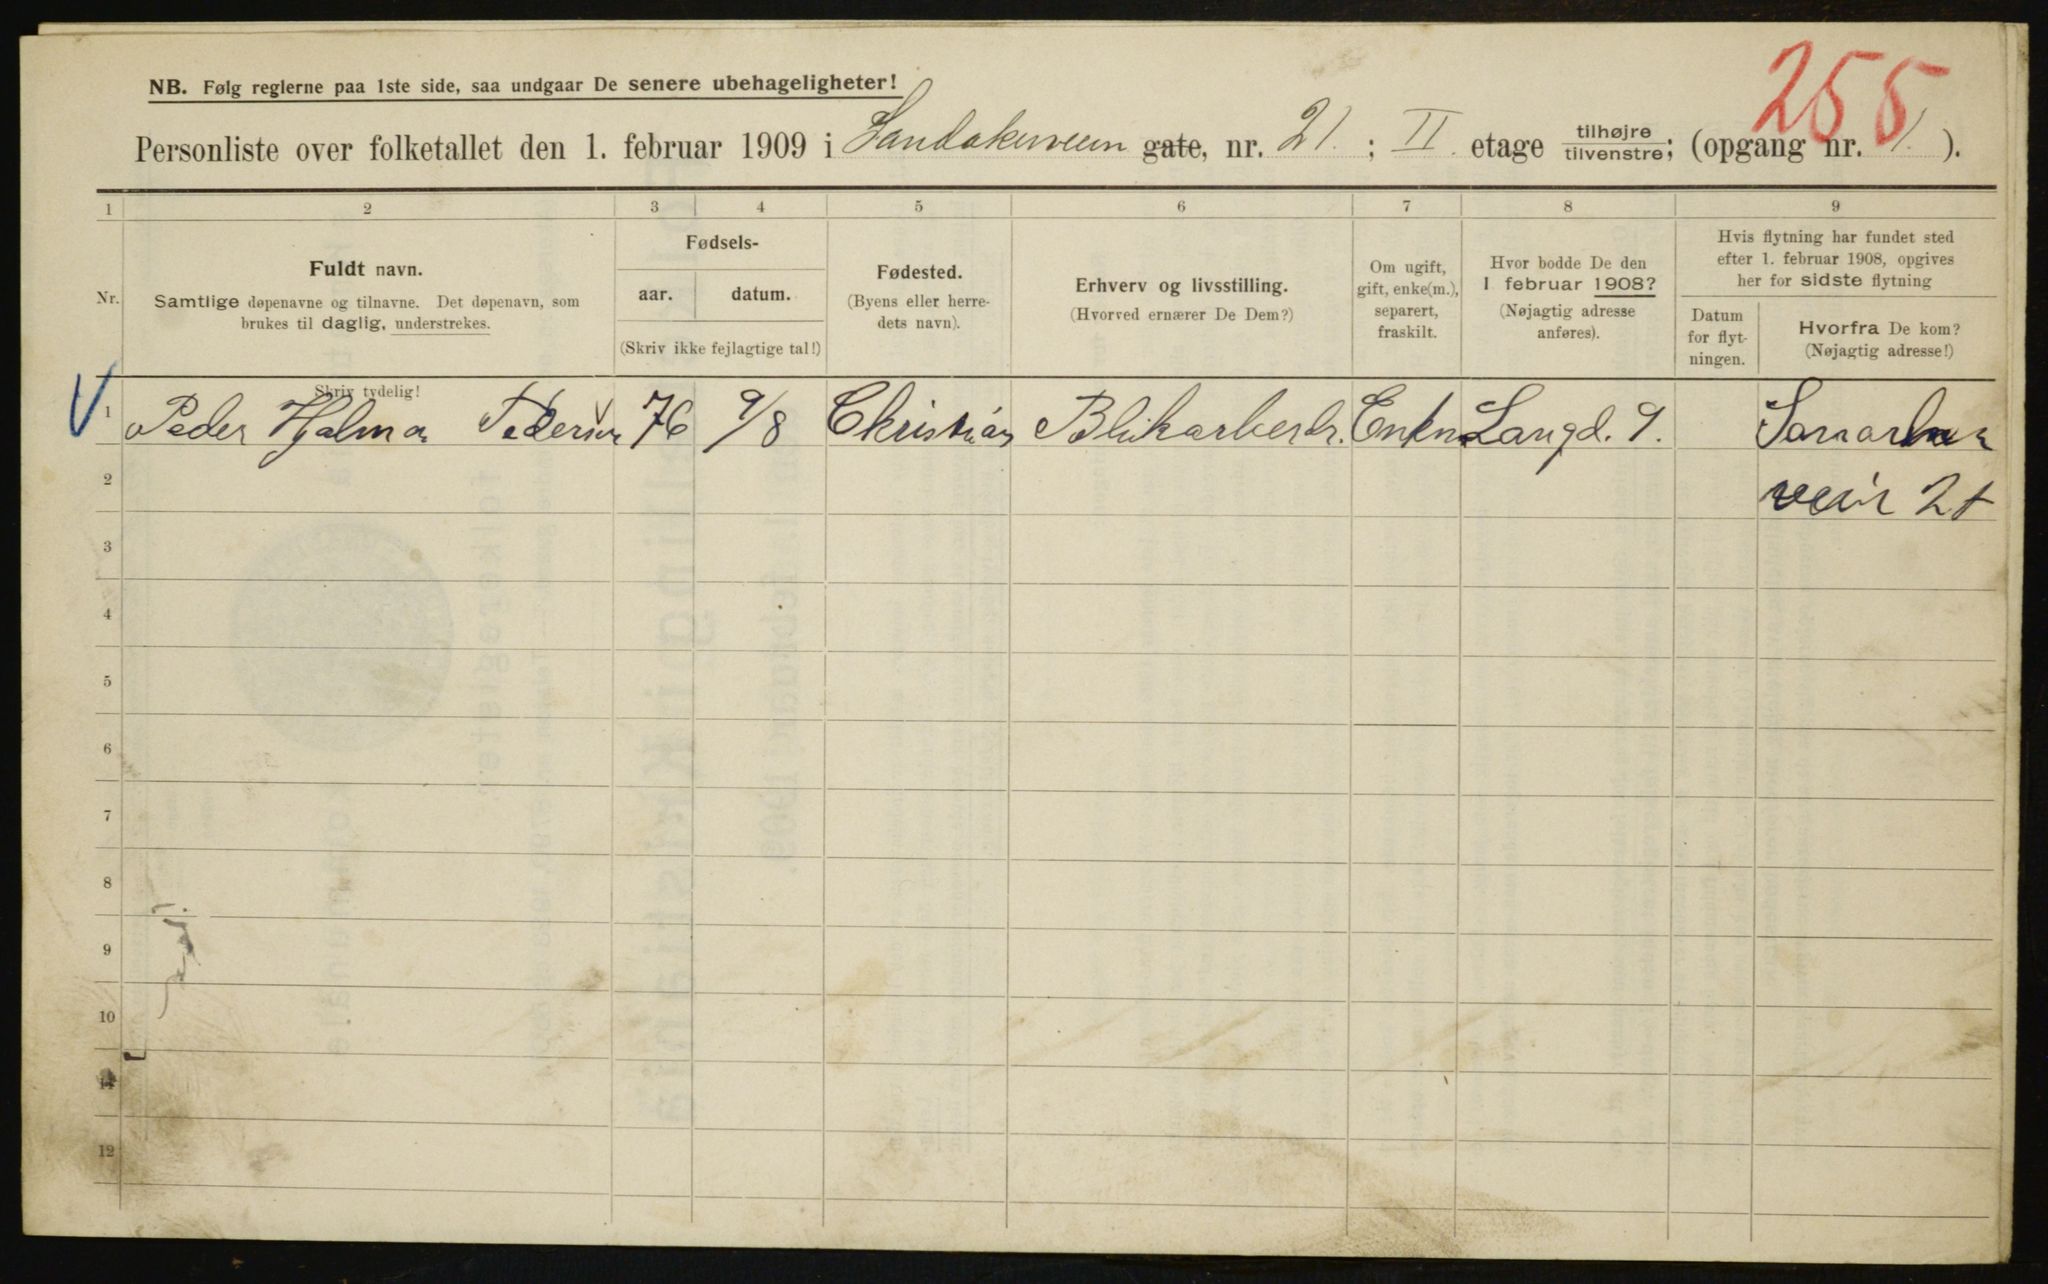 255
NB. Følg reglerne paa 1ste side, saa undgaar De senere ubehageligheter!
Personliste over folketallet den 1. februar 1909 i Sandakerveien gate, nr. 21. ; II. etage tilhøjre tilvenstre; (opgang nr. 1. ).
1 2 3 4 5 6 7 8 9
Nr.
Fuldt navn.
Samtlige døpenavne og tilnavne. Det døpenavn, som
brukes til daglig, understrekes.
Skriv tydelig!
Fødsels-
aar. datum.
(Skriv ikke fejlagtige tal!)
Fødested.
(Byens eller herre-
dets navn).
Erhverv og livsstilling.
(Hvorved ernærer De Dem?)
Om ugift,
gift, enke(m.),
separert,
fraskilt.
Hvor bodde De den
1 februar 1908?
(Nøjagtig adresse
anføres).
Hvis flytning har fundet sted
efter 1. februar 1908, opgives
her for sidste flytning
Datum
for flyt-
ningen.
Hvorfra De kom?
(Nøjagtig adresse!)
1 Peder Hjalmar Pedersen 76 9/8 Christian Blikarbeidr. Enkm Langd. 9.
2 21
3
4
5
6
7
8
9
10
11
12